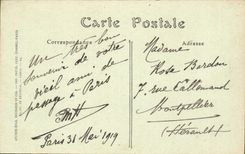 Carte Postale
Correspondance
Adresse
Un très bon
souvenir de votre
vieil ami de
passage à Paris
Paris 31 Mai 1919
Madame
Rose Bardou
7, rue Lallemand
Montpellier
(Hérault)